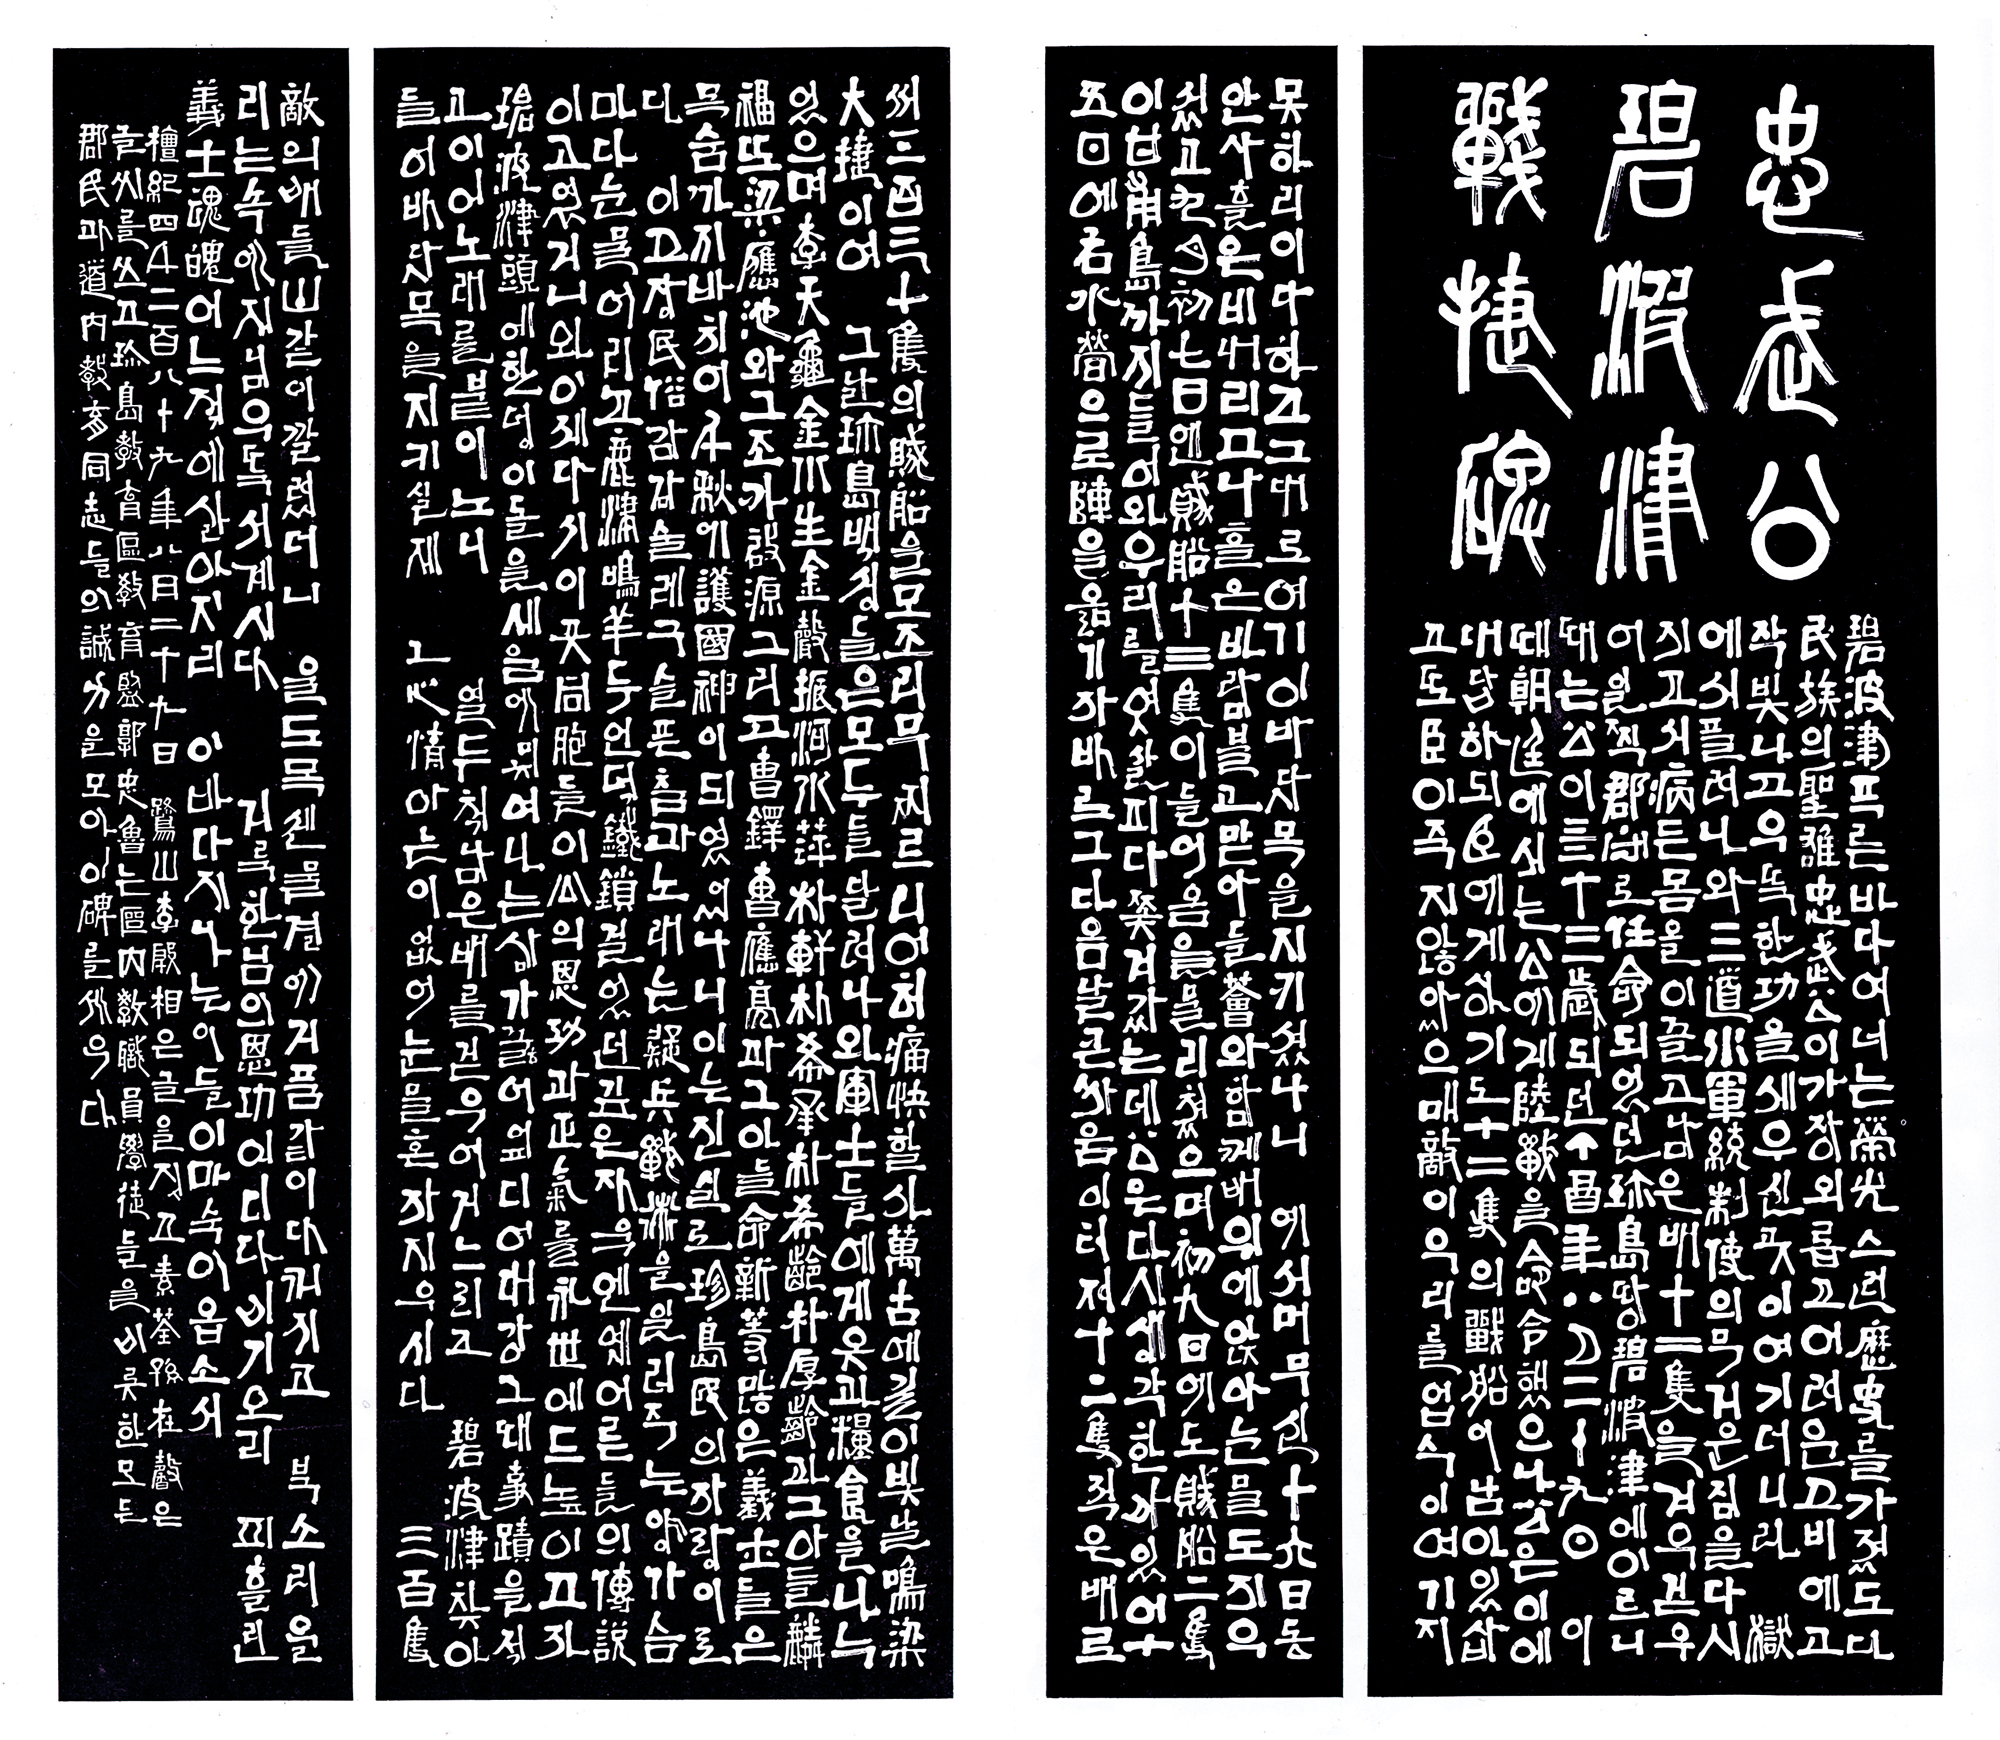 忠武公
碧波津
戰捷碑
碧波津푸른바다여너는榮光스런歷史를가졌도다
民族의聖雄忠武公이가장외롭고어려운고비에고
작빛나고우뚝한功을세우신곳이여기더니라 獄
에서풀려나와三道水軍統制使의무거운짐을다시
지고서病든몸을이끌고남은배十二隻을겨우걷우
어일찍郡守로任命되었던珍島땅碧波津에이르니
때는公이五十三歲되던丁酉年八月二十九日 이
때朝廷에서는公에게陸戰을命令했으나公은이에
대답하되臣에게상기도十二隻의戰船이남아있삽
고또臣이죽지않았으매敵이우리를업수이여기지
못하리이다하고그대로여기이바다목을지키셨나니 예서머무신十六日동
안사흘은비내리고나흘은바람불고맏아들薈와함께배위에앉아눈물도지우
셨고九月初七日엔賊船十三隻이들어옴을물리쳤으며初九日에도賊船二隻
이甘甫島까지들어와우리를엿살피다쫓겨갔는데公은다시생각한바있어十
五日에右水營으로陣을옮기자바로그다음날큰싸움이터져十二隻작은배로
써三百三十隻의賊船을모조리무찌르니어허痛快할사萬古에길이빛날鳴梁
大捷이여 그날珍島백성들은모두들달려나와軍士들에게옷과糧食을나누
었으며李天龜金水生金聲振河水萍朴軒朴希承朴希齡朴厚齡과그아들麟
福또梁應池와그조카啟源그리고曺鐸曺應亮과그아들命新等많은義士들은
목숨까지바치어千秋에護國神이되었나니이는진실로珍島民의자랑이로
다 이고장民俗강강술레구슬픈춤과노래는疑兵戰術을일러주는양가슴
마다눈물어리고鹿津鳴羊두언덕鐵鎖걸었던깊은자욱엔옛어른들의傳說
이고였거니와이제다시이곳同胞들이公의恩功과正氣를永世에드높이고자
碧波津頭에한덩이돌을세움에미쳐여나는삼가끓어엎디어대강그때事蹟을적
고이어노래를붙이노니 열두척남은배를걷우어거느리고 碧波津찾아
들어바닷목을지키실제 그心情아는이없어눈물혼자지우시다 三百隻
敵의배들山같이깔렸더니 울도목센물결에거품같이다꺼지고 북소리울
리는속에저님우뚝서계시다 거룩한님의恩功이어디다비기오리 피흘린
義士魂魄어느적에살아지리 이바다지나는이들이마숙이옵소서
檀紀四千二百八十九年八月二十九日 鷺山李殷相은글을짓고素荃孫在馨은
글씨를쓰고珍島敎育區敎育監郭忠魯는區內敎職員學徒들을비롯한모든
郡民과道內敎育同志들의誠力을모아이碑를세우다